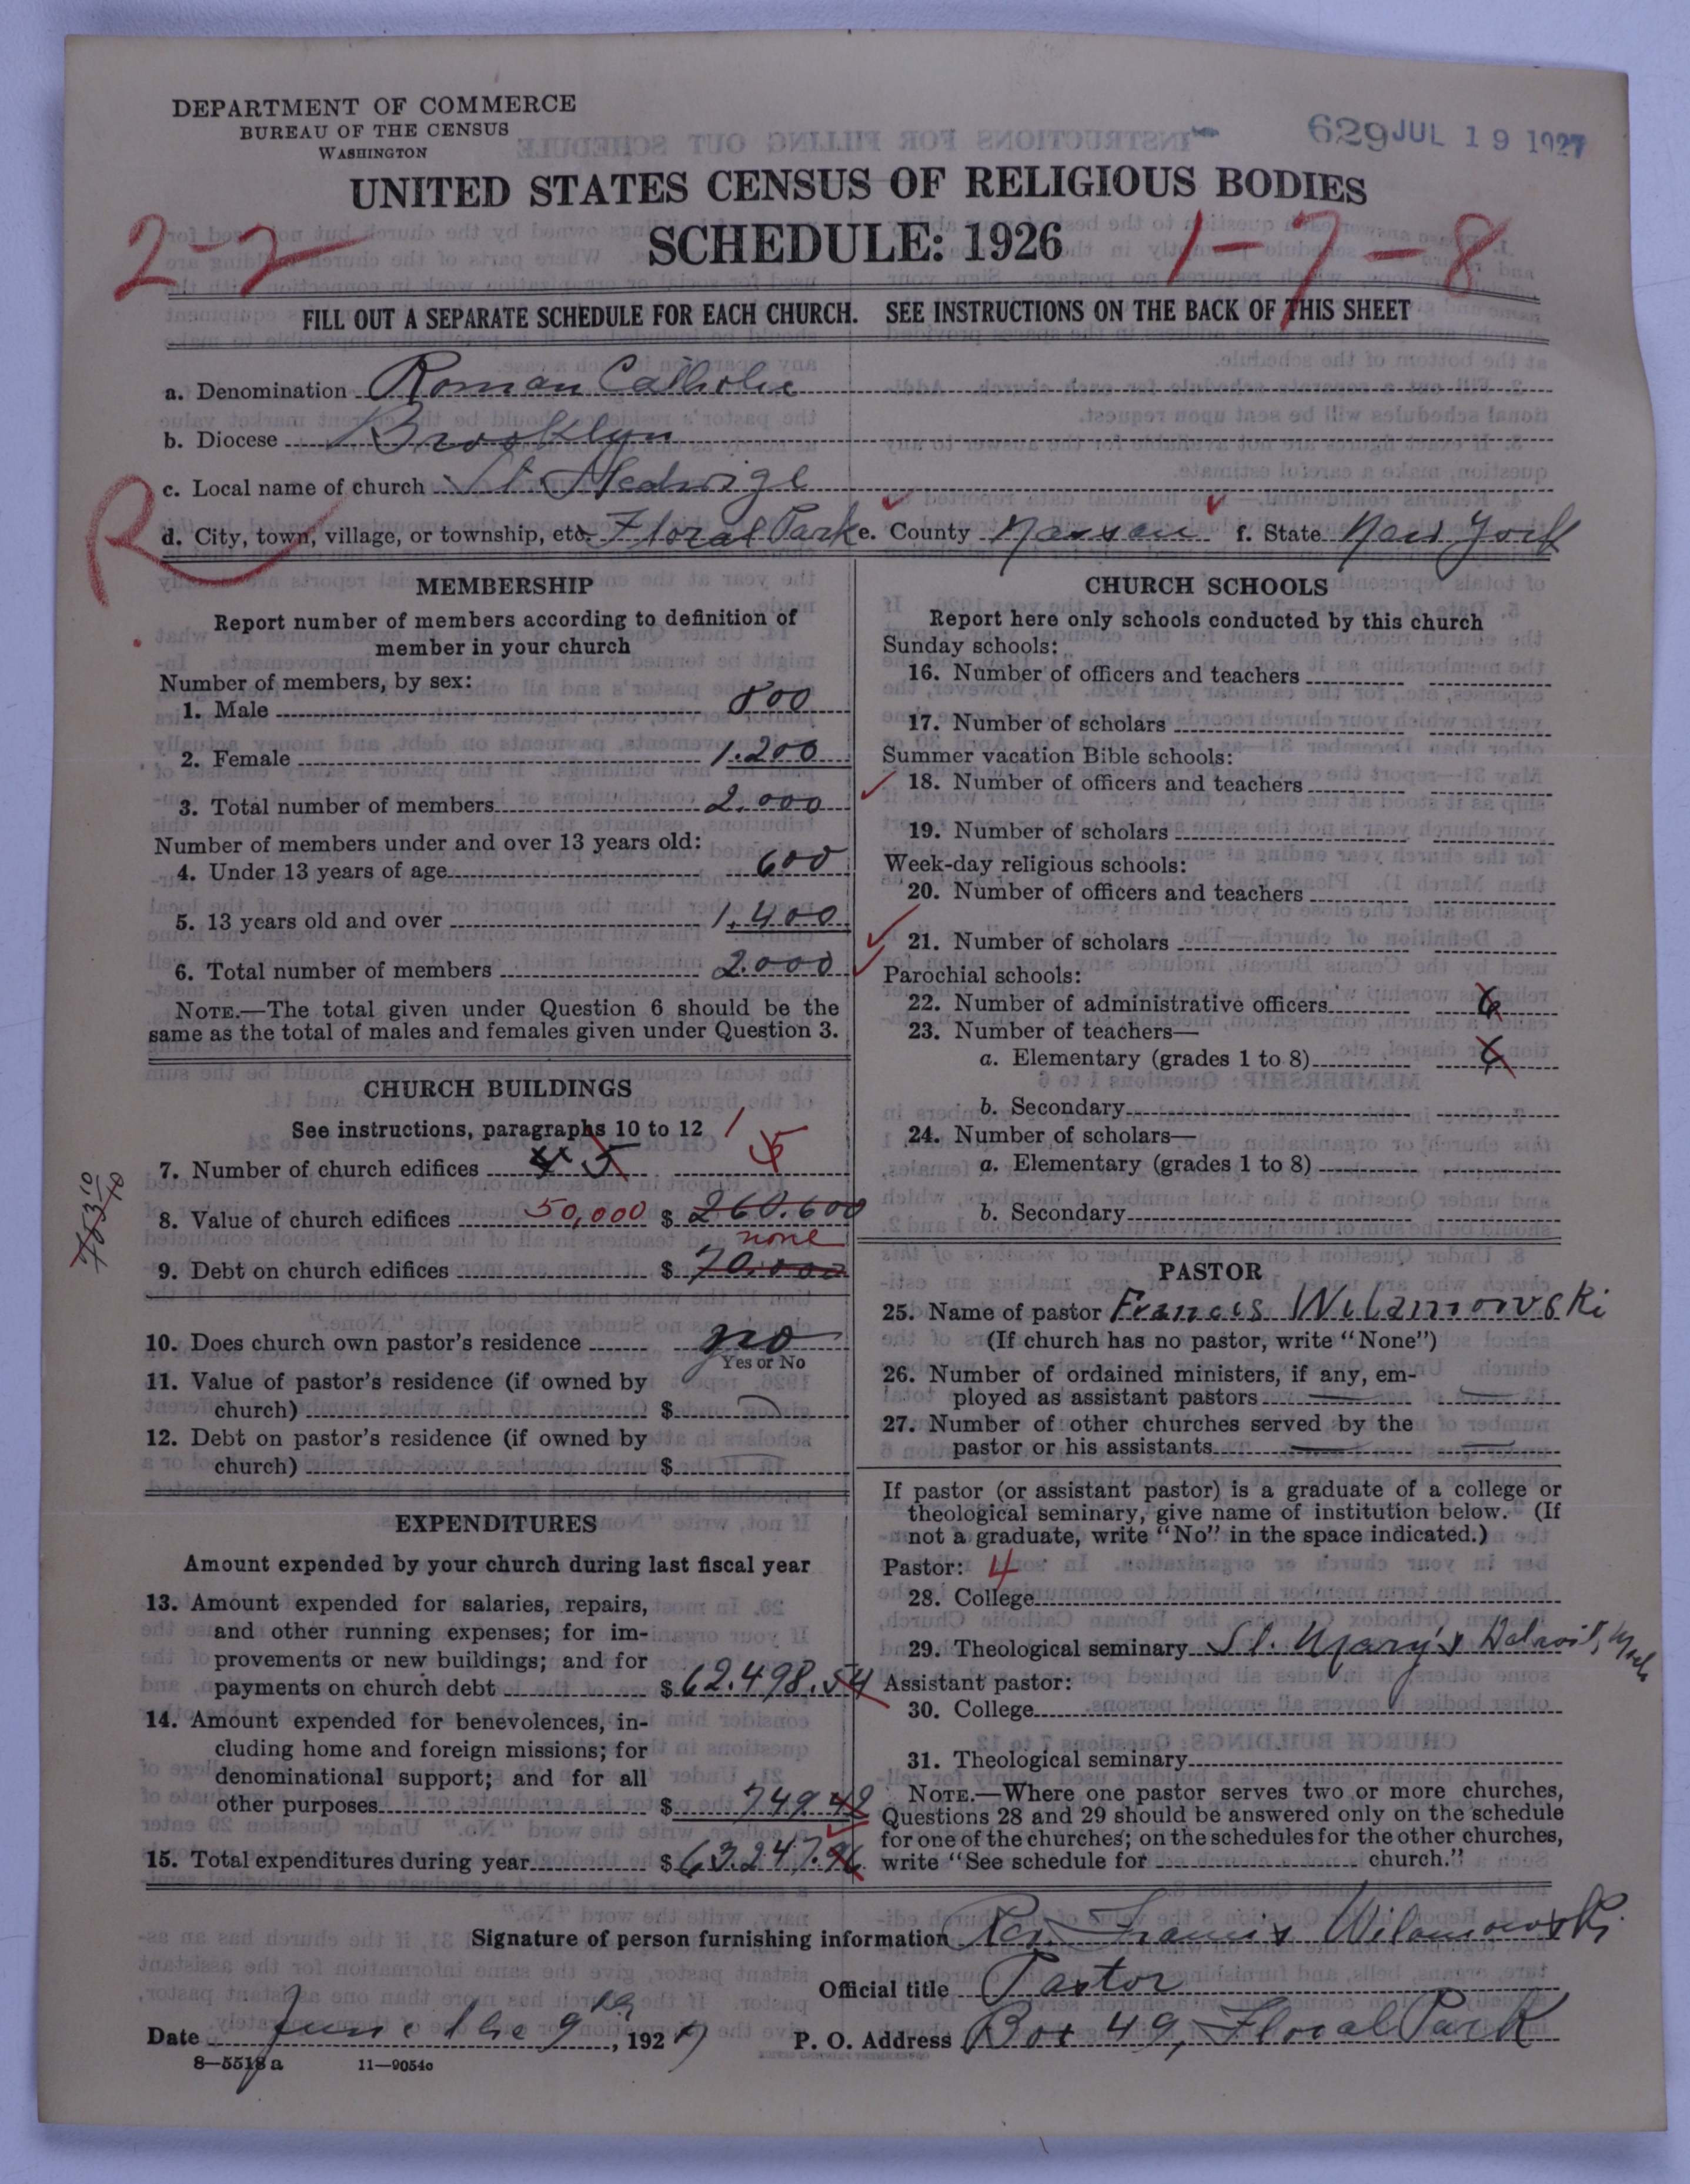 DEPARTMENT OF COMMERCE
BUREAU OF THE CENSUS
WASHINGTON
629 JUL 19 1927
UNITED STATES CENSUS OF RELIGIOUS BODIES
SCHEDULE: 1926
2-2
1-7-8
FILL OUT A SEPARATE SCHEDULE FOR EACH CHURCH. SEE INSTRUCTIONS ON THE BACK OF THIS SHEET
a. Denomination Roman Catholic
b. Diocese Brooklyn
R
c. Local name of church St Hedwige
d. City, town, village, or township, etc. Floral Park e. County Nassau f. State New York
MEMBERSHIP
Report number of members according to definition of
member in your church
Number of members, by sex:
1. Male 800
2. Female 1.200
3. Total number of members 2.000
Number of members under and over 13 years old:
4. Under 13 years of age 600
5. 13 years old and over 1.400
6. Total number of members 2.000
NOTE.—The total given under Question 6 should be the
same as the total of males and females given under Question 3.
CHURCH BUILDINGS
See instructions, paragraphs 10 to 12
1
7. Number of church edifices 5 5
8. Value of church edifices 50,000 $ 260.600
none
9. Debt on church edifices $ 70.000
10. Does church own pastor's residence no
Yes or No
11. Value of pastor's residence (if owned by
church) $
12. Debt on pastor's residence (if owned by
church) $
EXPENDITURES
Amount expended by your church during last fiscal year
13. Amount expended for salaries, repairs,
and other running expenses; for im-
provements or new buildings; and for
payments on church debt $ 62.498.54
14. Amount expended for benevolences, in-
cluding home and foreign missions; for
denominational support; and for all
other purposes $ 749.42
15. Total expenditures during year $ 63.247.96
CHURCH SCHOOLS
Report here only schools conducted by this church
Sunday schools:
16. Number of officers and teachers
17. Number of scholars
Summer vacation Bible schools:
18. Number of officers and teachers
19. Number of scholars
Week-day religious schools:
20. Number of officers and teachers
21. Number of scholars
Parochial schools:
22. Number of administrative officers 6
23. Number of teachers—
a. Elementary (grades 1 to 8) 6
b. Secondary
24. Number of scholars—
a. Elementary (grades 1 to 8)
b. Secondary
PASTOR
25. Name of pastor Francis Wilamowski
(If church has no pastor, write "None")
26. Number of ordained ministers, if any, em-
ployed as assistant pastors
27. Number of other churches served by the
pastor or his assistants
If pastor (or assistant pastor) is a graduate of a college or
theological seminary, give name of institution below. (If
not a graduate, write "No" in the space indicated.)
Pastor: 4
28. College
29. Theological seminary St. Mary's Detroit, Mich
Assistant pastor:
30. College
31. Theological seminary
NOTE.—Where one pastor serves two or more churches,
Questions 28 and 29 should be answered only on the schedule
for one of the churches; on the schedules for the other churches,
write "See schedule for church."
Signature of person furnishing information Rev. Francis Wilamowski
Official title Pastor
Date June the 9th, 1927 P. O. Address Box 49, Floral Park
8—5518 a 11—9054c